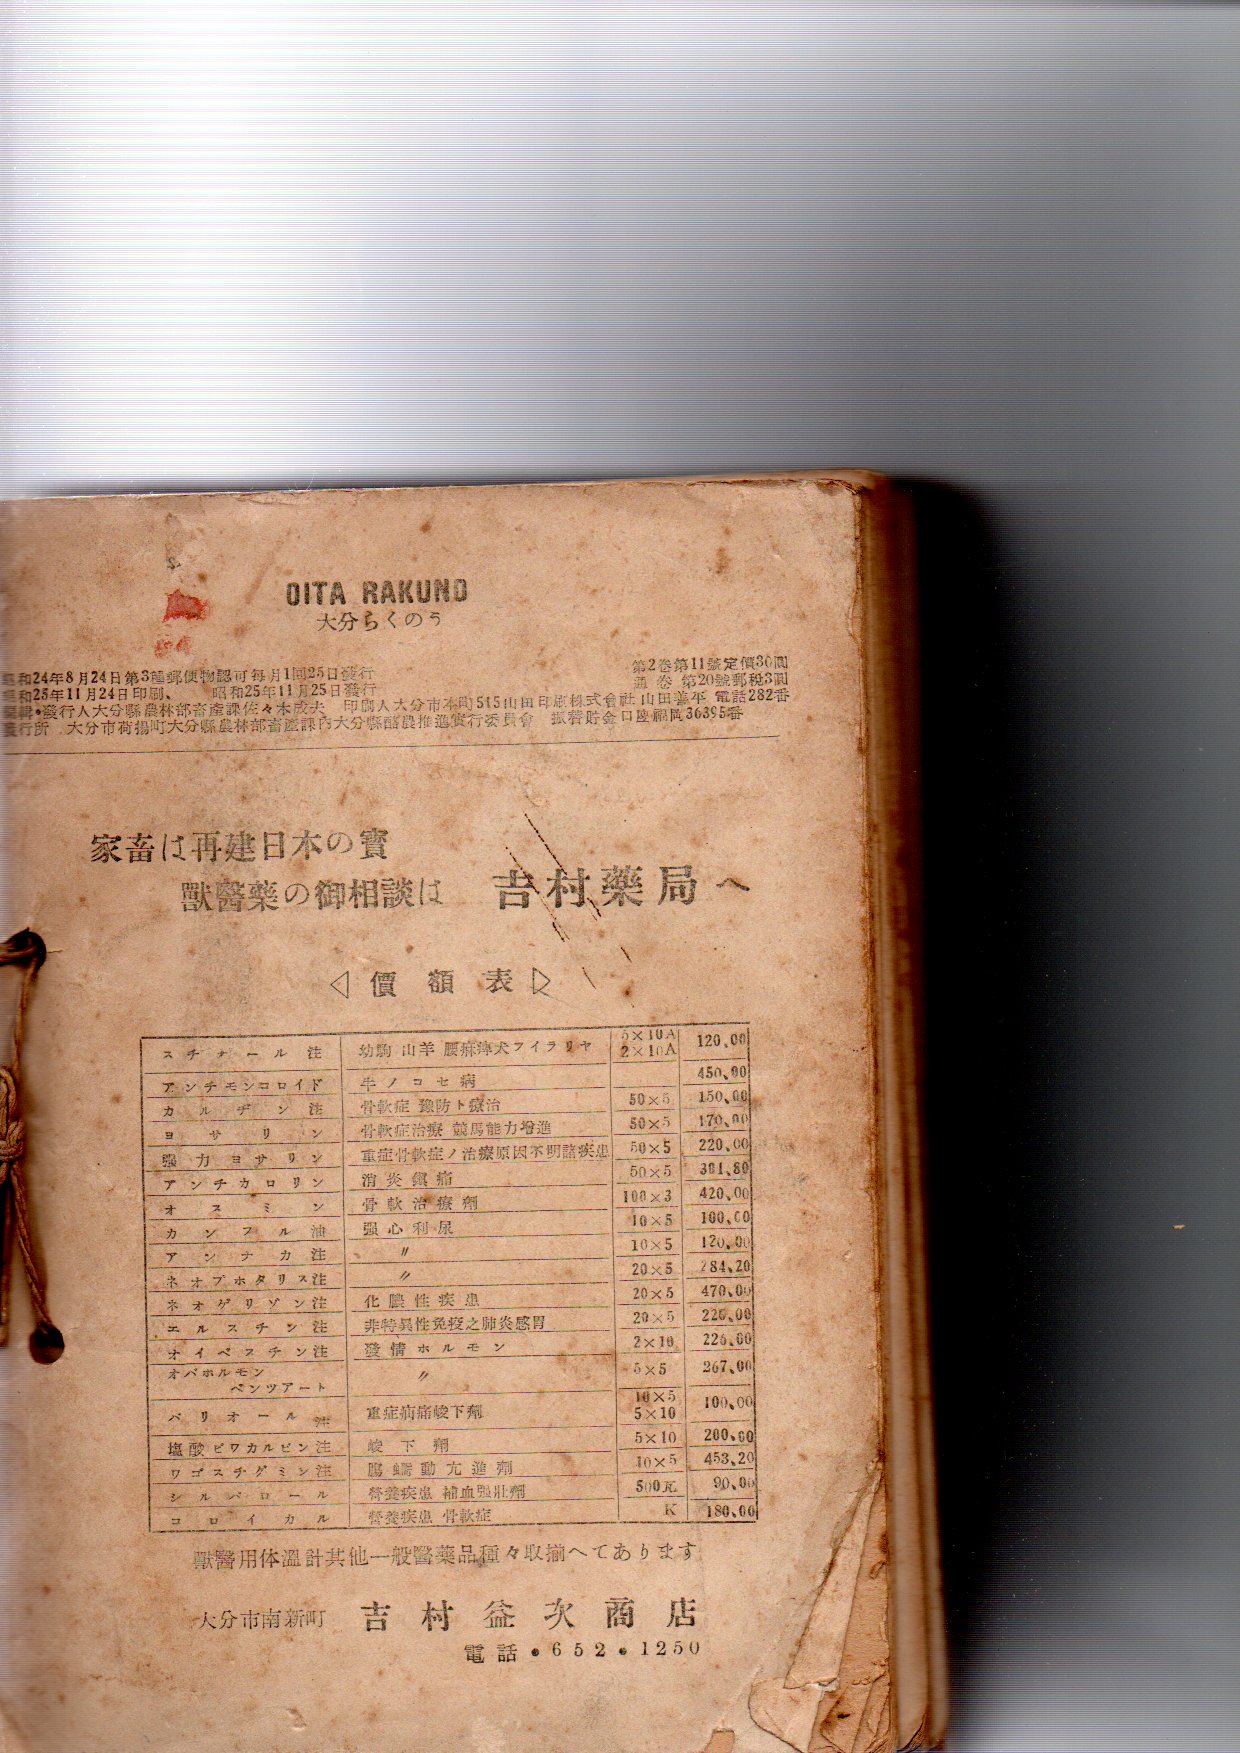 OITA RAKUNO
大分らくのう
和24年8月24日第3種郵便物認可每月1回25日發行
第2卷第11號定價30圓
和25年11月24日印刷、 昭和25年11月25日發行
通卷 第20號郵税3圓
輯•發行人大分縣農林部畜產課佐々木成夫 印刷人大分市本町515山田印刷株式會社 山田 平 電話282番
行所 大分市荷揚町大分縣農林部畜產課內大分縣酪農推進實行委員會 振替貯金口座福岡36395番
家畜は再建日本の寶
獸醫藥の御相談は 吉村藥局へ
◁ 價額表 ▷
スチナール注 幼駒 山羊 腰麻痺犬フイラリヤ 5×10A 2×10A 120.00
アンチモンコロイド 牛ノコセ病 450.00
カルヂン注 骨軟症 豫防ト療治 50×5 150.00
ヨサリン 骨軟症治療 競馬能力增進 50×5 170.00
强力ヨサリン 重症骨軟症ノ治療原因不明諸疾患 50×5 220.00
アンチカロリン 消炎鎮痛 50×5 301.80
オスミン 骨軟治療劑 100×3 420.00
カンフル油 强心利尿 10×5 100.00
アンナカ注 〃 10×5 120.00
ネオプホタリス注 〃 20×5 284.20
ネオゲリゾン注 化膿性疾患 20×5 470.00
エルスチン注 非特異性免疫之肺炎感冒 20×5 220.00
オイベスチン注 發情ホルモン 2×10 226.00
オバホルモン
ベンツアート 〃 5×5 267.00
バリオール注 重症疝痛峻下劑 10×5 5×10 100.00
塩酸ピワカルピン注 峻下劑 5×10 200.00
ワゴスチグミン注 腸蠕動亢進劑 10×5 453.20
シルバロール 營養疾患 補血强壯劑 500瓦 90.00
コロイカル 營養疾患 骨軟症 K 180.00
獸醫用体溫計其他一般醫藥品種々取揃へてあります
大分市南新町 吉村益次商店
電話•652•1250